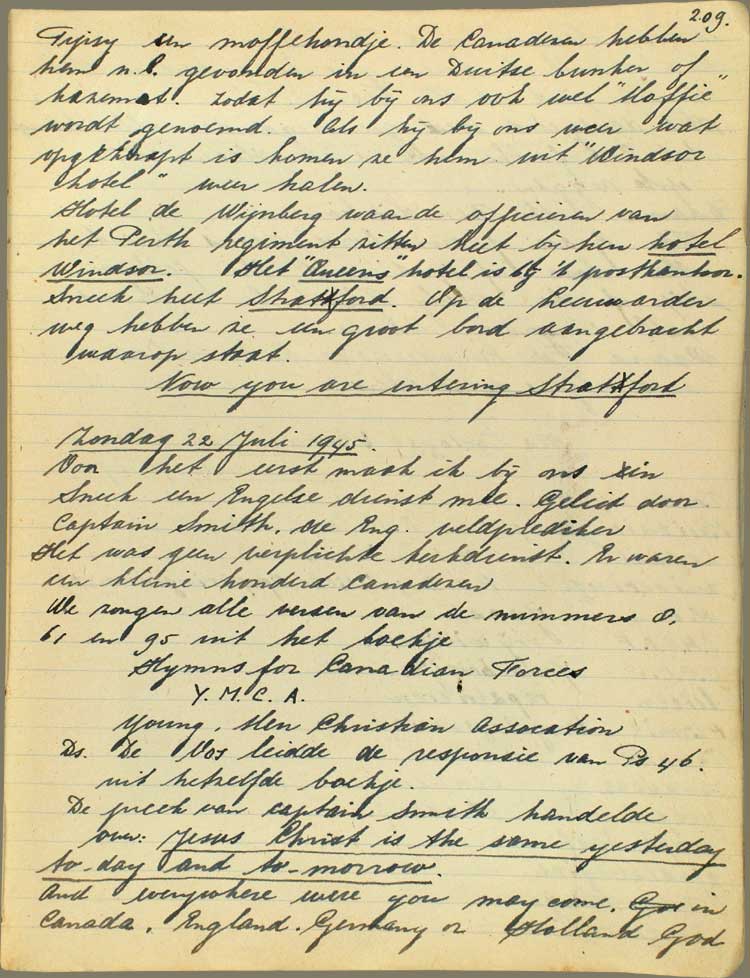 209.
Tipsy een moffehondje. De Canadezen hebben
hem n.l. gevonden in een Duitse bunker of
kazemat. zodat hij bij ons ook wel "Moffie"
wordt genoemd. Als hij bij ons weer wat
opgeknapt is komen ze hem uit "Windsor
hotel" weer halen.
Hotel de Wijnberg waar de officieren van
het Perth regiment zitten heet bij hen hotel
Windsor. Het "Queens" hotel is bij 't postkantoor.
Sneek heet Stratford. Op de Leeuwarder
weg hebben ze een groot bord aangebracht
waarop staat.
Now you are entering Stratford
Zondag 22 Juli 1945.
Voor het eerst maak ik bij ons in
Sneek een Engelse dienst mee. Geleid door
Captain Smith, de Eng. veldprediker
Het was geen verplichte kerkdienst. Er waren
een kleine honderd Canadezen
We zongen alle verzen van de nummers 8.
61 en 95 uit het boekje
Hymns for Canadian Forces
Y. M. C. A.
Young, Men Christian Assocation
Ds. De Vos leidde de responsie van Ps 46.
uit hetzelfde boekje.
De preek van captain Smith handelde
over: Jesus Christ is the same yesterday
to-day and to-morrow.
And everywhere were you may come, God in
Canada, England, Germany or Holland God